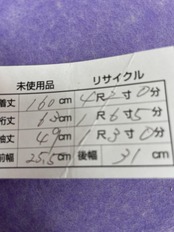 未使用品 リサイクル
着丈 160cm 4尺2寸0分
裄丈 63cm 1尺6寸5分
袖丈 49cm 1尺3寸0分
前幅 25.5cm 後幅 31cm